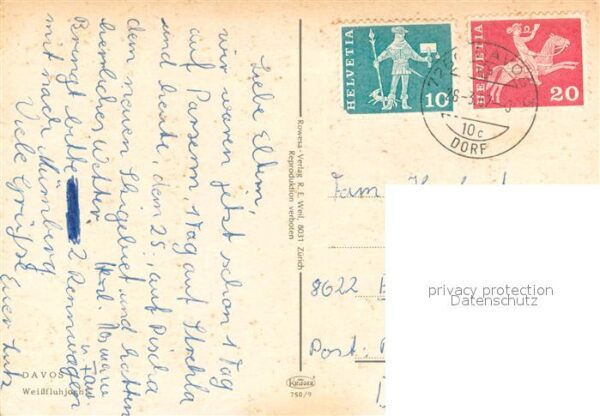 Liebe Eltern,
wir waren jetzt schon 1 Tag
auf Parsenn, 1 Tag auf Strehla
und heute, dem 25., auf Pischa
dem neuen Skigebiet und hatten
herrliches Wetter.
Bringt bitte 2 Rennwagen
mit nach Nürnberg
Viele Grüße
Euer Lutz
Rosmarie
DAVOS
Weißfluhjoch
Rowesa-Verlag R. E. Weil, 8031 Zürich
Reproduktion verboten
750/9
HELVETIA
10
HELVETIA
20
7260 DAVOS
10 c
DORF
Fam
8622
Post:
privacy protection
Datenschutz